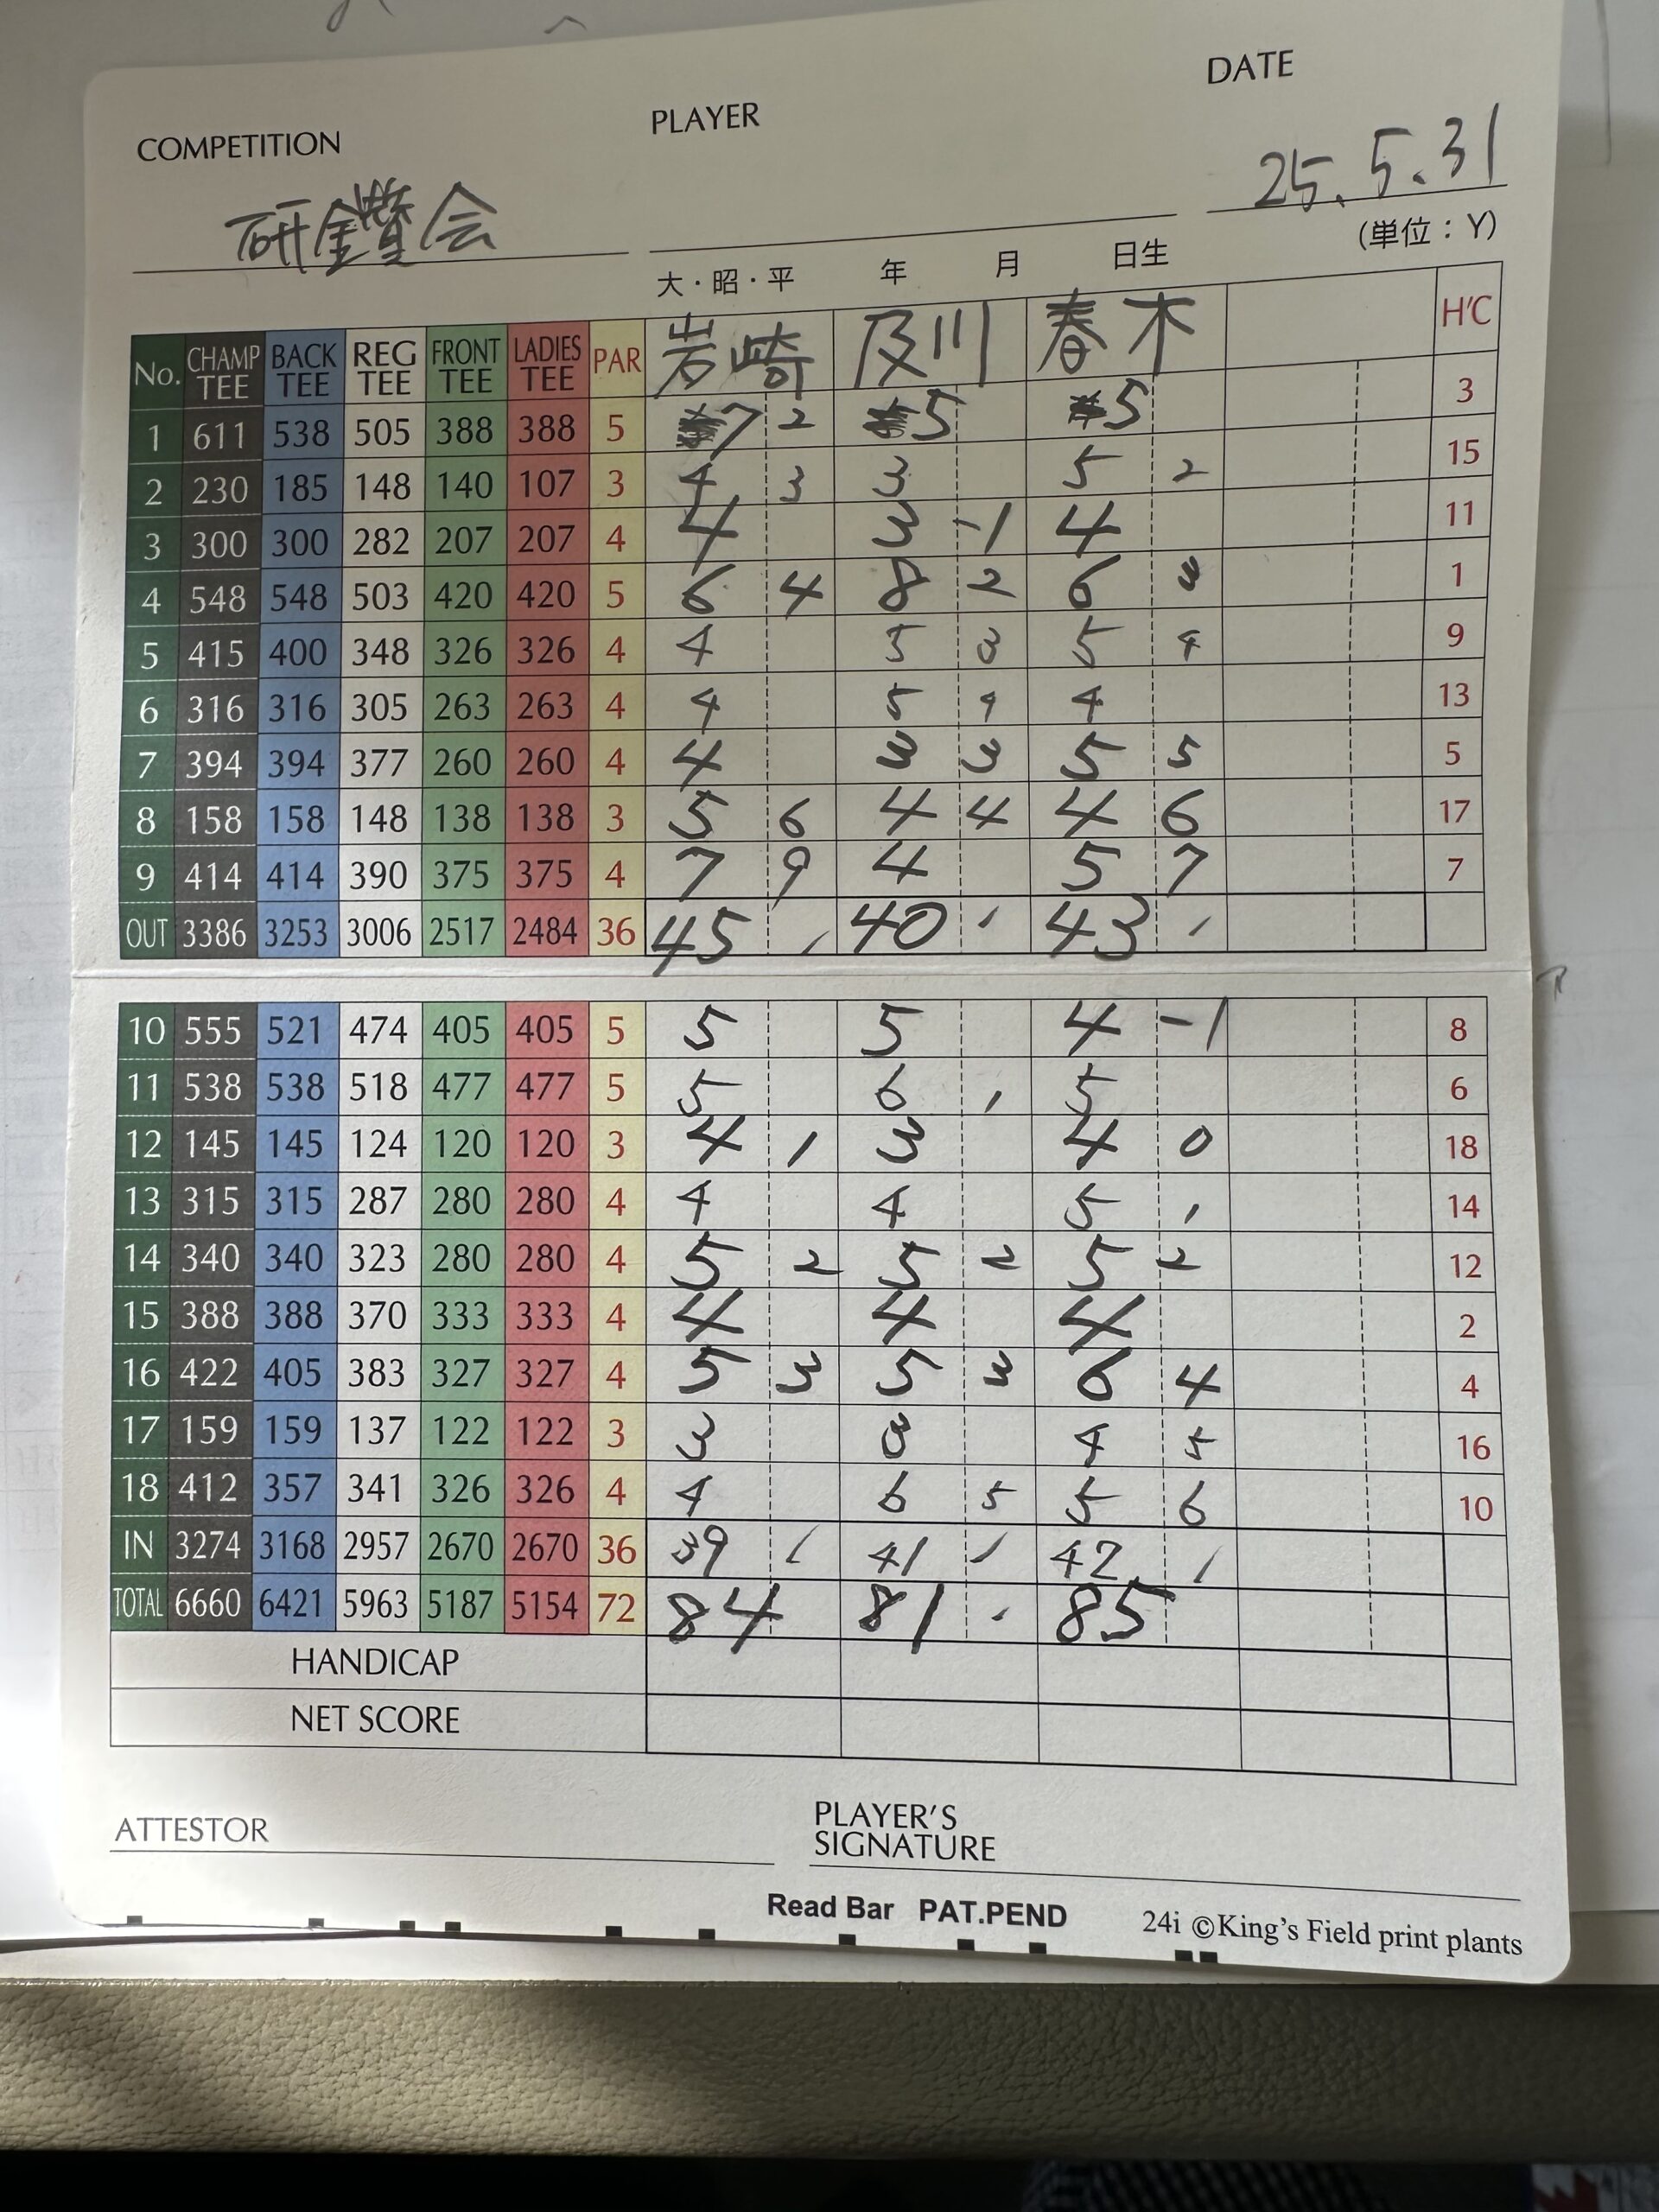 DATE
COMPETITION PLAYER
25.5.31
研鑽会
(単位：Y)
大・昭・平 年 月 日生
No. CHAMP TEE BACK TEE REG TEE FRONT TEE LADIES TEE PAR 岩崎 及川 春木 H'C
1 611 538 505 388 388 5 7 2 5 5 3
2 230 185 148 140 107 3 4 3 3 5 2 15
3 300 300 282 207 207 4 4 3 -1 4 11
4 548 548 503 420 420 5 6 4 8 2 6 3 1
5 415 400 348 326 326 4 4 5 3 5 4 9
6 316 316 305 263 263 4 4 5 4 4 13
7 394 394 377 260 260 4 4 3 3 5 5 5
8 158 158 148 138 138 3 5 6 4 4 4 6 17
9 414 414 390 375 375 4 7 9 4 5 7 7
OUT 3386 3253 3006 2517 2484 36 45 40 43
10 555 521 474 405 405 5 5 5 4 -1 8
11 538 538 518 477 477 5 5 6 1 5 6
12 145 145 124 120 120 3 4 1 3 4 0 18
13 315 315 287 280 280 4 4 4 5 1 14
14 340 340 323 280 280 4 5 2 5 2 5 2 12
15 388 388 370 333 333 4 4 4 4 2
16 422 405 383 327 327 4 5 3 5 3 6 4 4
17 159 159 137 122 122 3 3 3 4 5 16
18 412 357 341 326 326 4 4 6 5 5 6 10
IN 3274 3168 2957 2670 2670 36 39 41 42
TOTAL 6660 6421 5963 5187 5154 72 84 81 85
HANDICAP
NET SCORE
ATTESTOR PLAYER'S SIGNATURE
Read Bar PAT.PEND 24i ©King's Field print plants